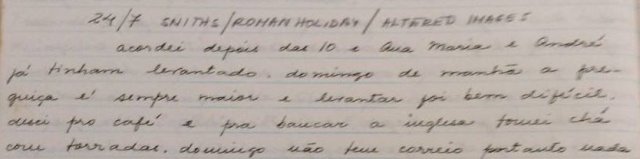 24/7 SMITHS/ROMAN HOLIDAY/ALTERED IMAGES
acordei depois das 10 e Ana Maria e André
já tinham levantado. domingo de manhã a pre-
guiça é sempre maior e levantar foi bem difícil.
desci pro café e pra bancar a inglesa tomei chá
com torradas. domingo não tem correio portanto nada